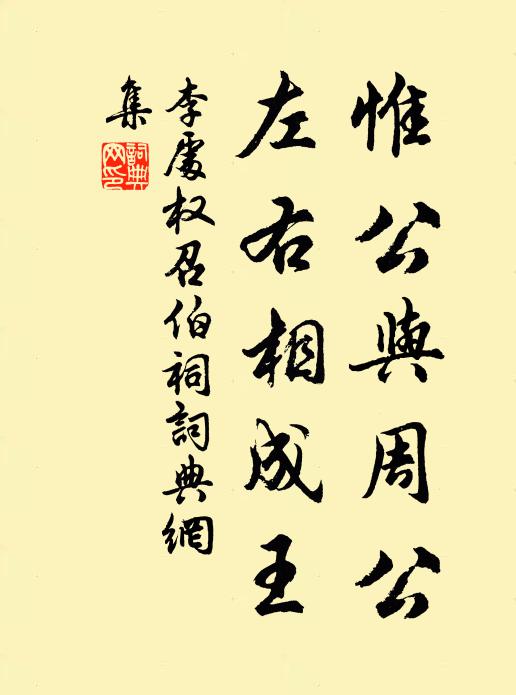 惟公與周公
左右相成王
李處权召伯祠詞典網
集
詞典網印